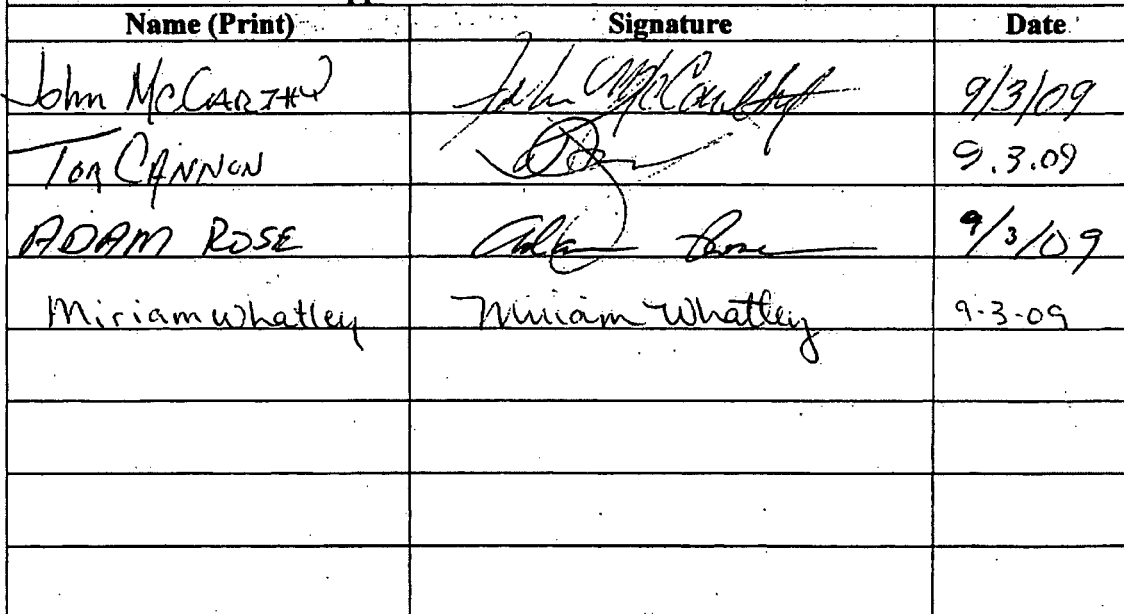 Name (Print) Signature Date
John McCARTHY John McCarthy 9/3/09
TOM CANNON 9.3.09
ADAM ROSE Adam Rose 9/3/09
Miriam Whatley Miriam Whatley 9-3-09